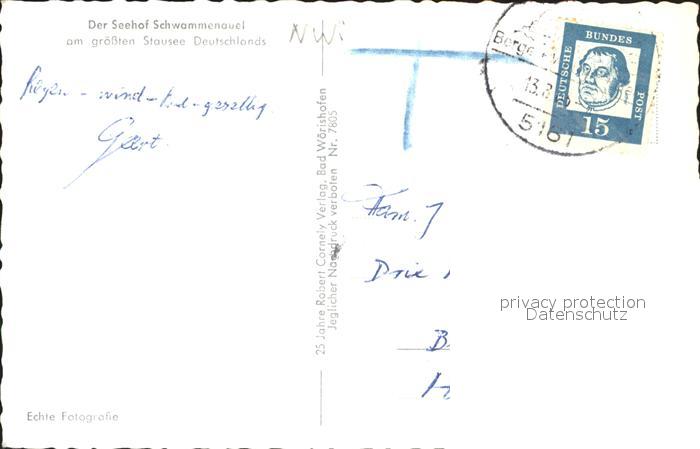 Der Seehof Schwammenauel
am größten Stausee Deutschlands
Regen - wind - und - gesellig
Geert.
25 Jahre Robert Cornely Verlag, Bad Wörishofen
Jeglicher Nachdruck verboten Nr. 7805
DEUTSCHE BUNDES POST
15
13.8
5161
Fam. J
B
privacy protection
Datenschutz
Echte Fotografie